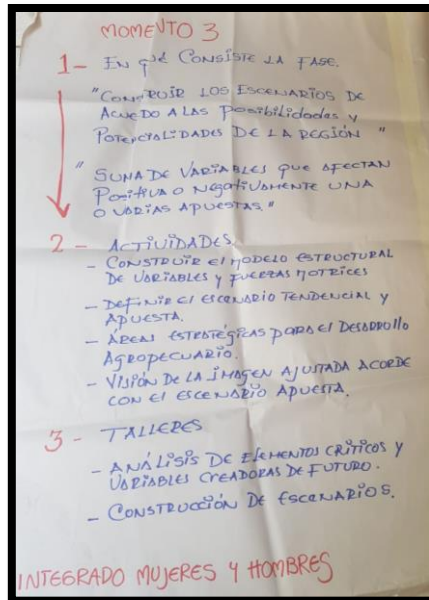 MOMENTO 3
1- EN qué CONSISTE LA FASE.
"CONSTRUIR LOS ESCENARIOS DE
ACUEDO A LAS POSIBILIDADES y
POTENCIALIDADES DE LA REGIÓN"
"SUMA DE VARIABLES QUE AFECTAN
POSITIVA O NEGATIVAMENTE UNA
O VARIAS APUESTAS."
2- ACTIVIDADES.
- CONSTRUIR El MODELO ESTRUCTURAL
DE VARIABLES y FUERZAS MOTRICES
- DEFINIR El ESCENARIO TENDENCIAL y
APUESTA.
- ÁREAS ESTRATÉGICAS PARA El DESARROllo
AGROPECUARIO.
- VISIÓN DE LA IMAGEN AJUSTADA ACORDE
CON El ESCENARIO APUESTA.
3- TALLERES
- ANÁLISIS DE ElEMENTOS CRÍTICOS y
VARIABLES CREADORAS DE FUTURO.
- CONSTRUCCIÓN DE ESCENARIOS.
INTEGRADO MUJERES Y HOMBRES